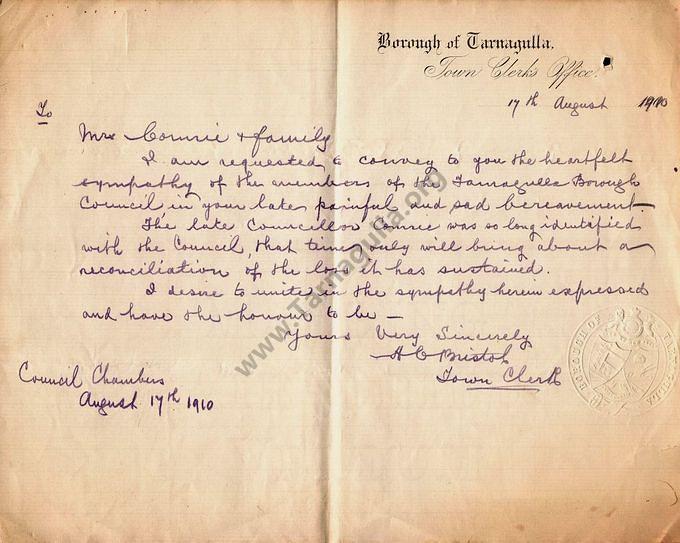 Borough of Tarnagulla.
Town Clerks Office.
17th August 1910
To
Mrs Comrie & family
I am requested to convey to you the heartfelt
sympathy of the members of the Tarnagulla Borough
Council, in your late painful and sad bereavement.
The late Councillor Comrie was so long identified
with the Council, that time only will bring about a
reconciliation of the loss it has sustained.
I desire to unite in the sympathy herein expressed
and have the honour to be —
Yours Very Sincerely
H C Bristol
Town Clerk
Council Chambers
August 17th 1910
BOROUGH OF TARNAGULLA
www.Tarnagulla.org